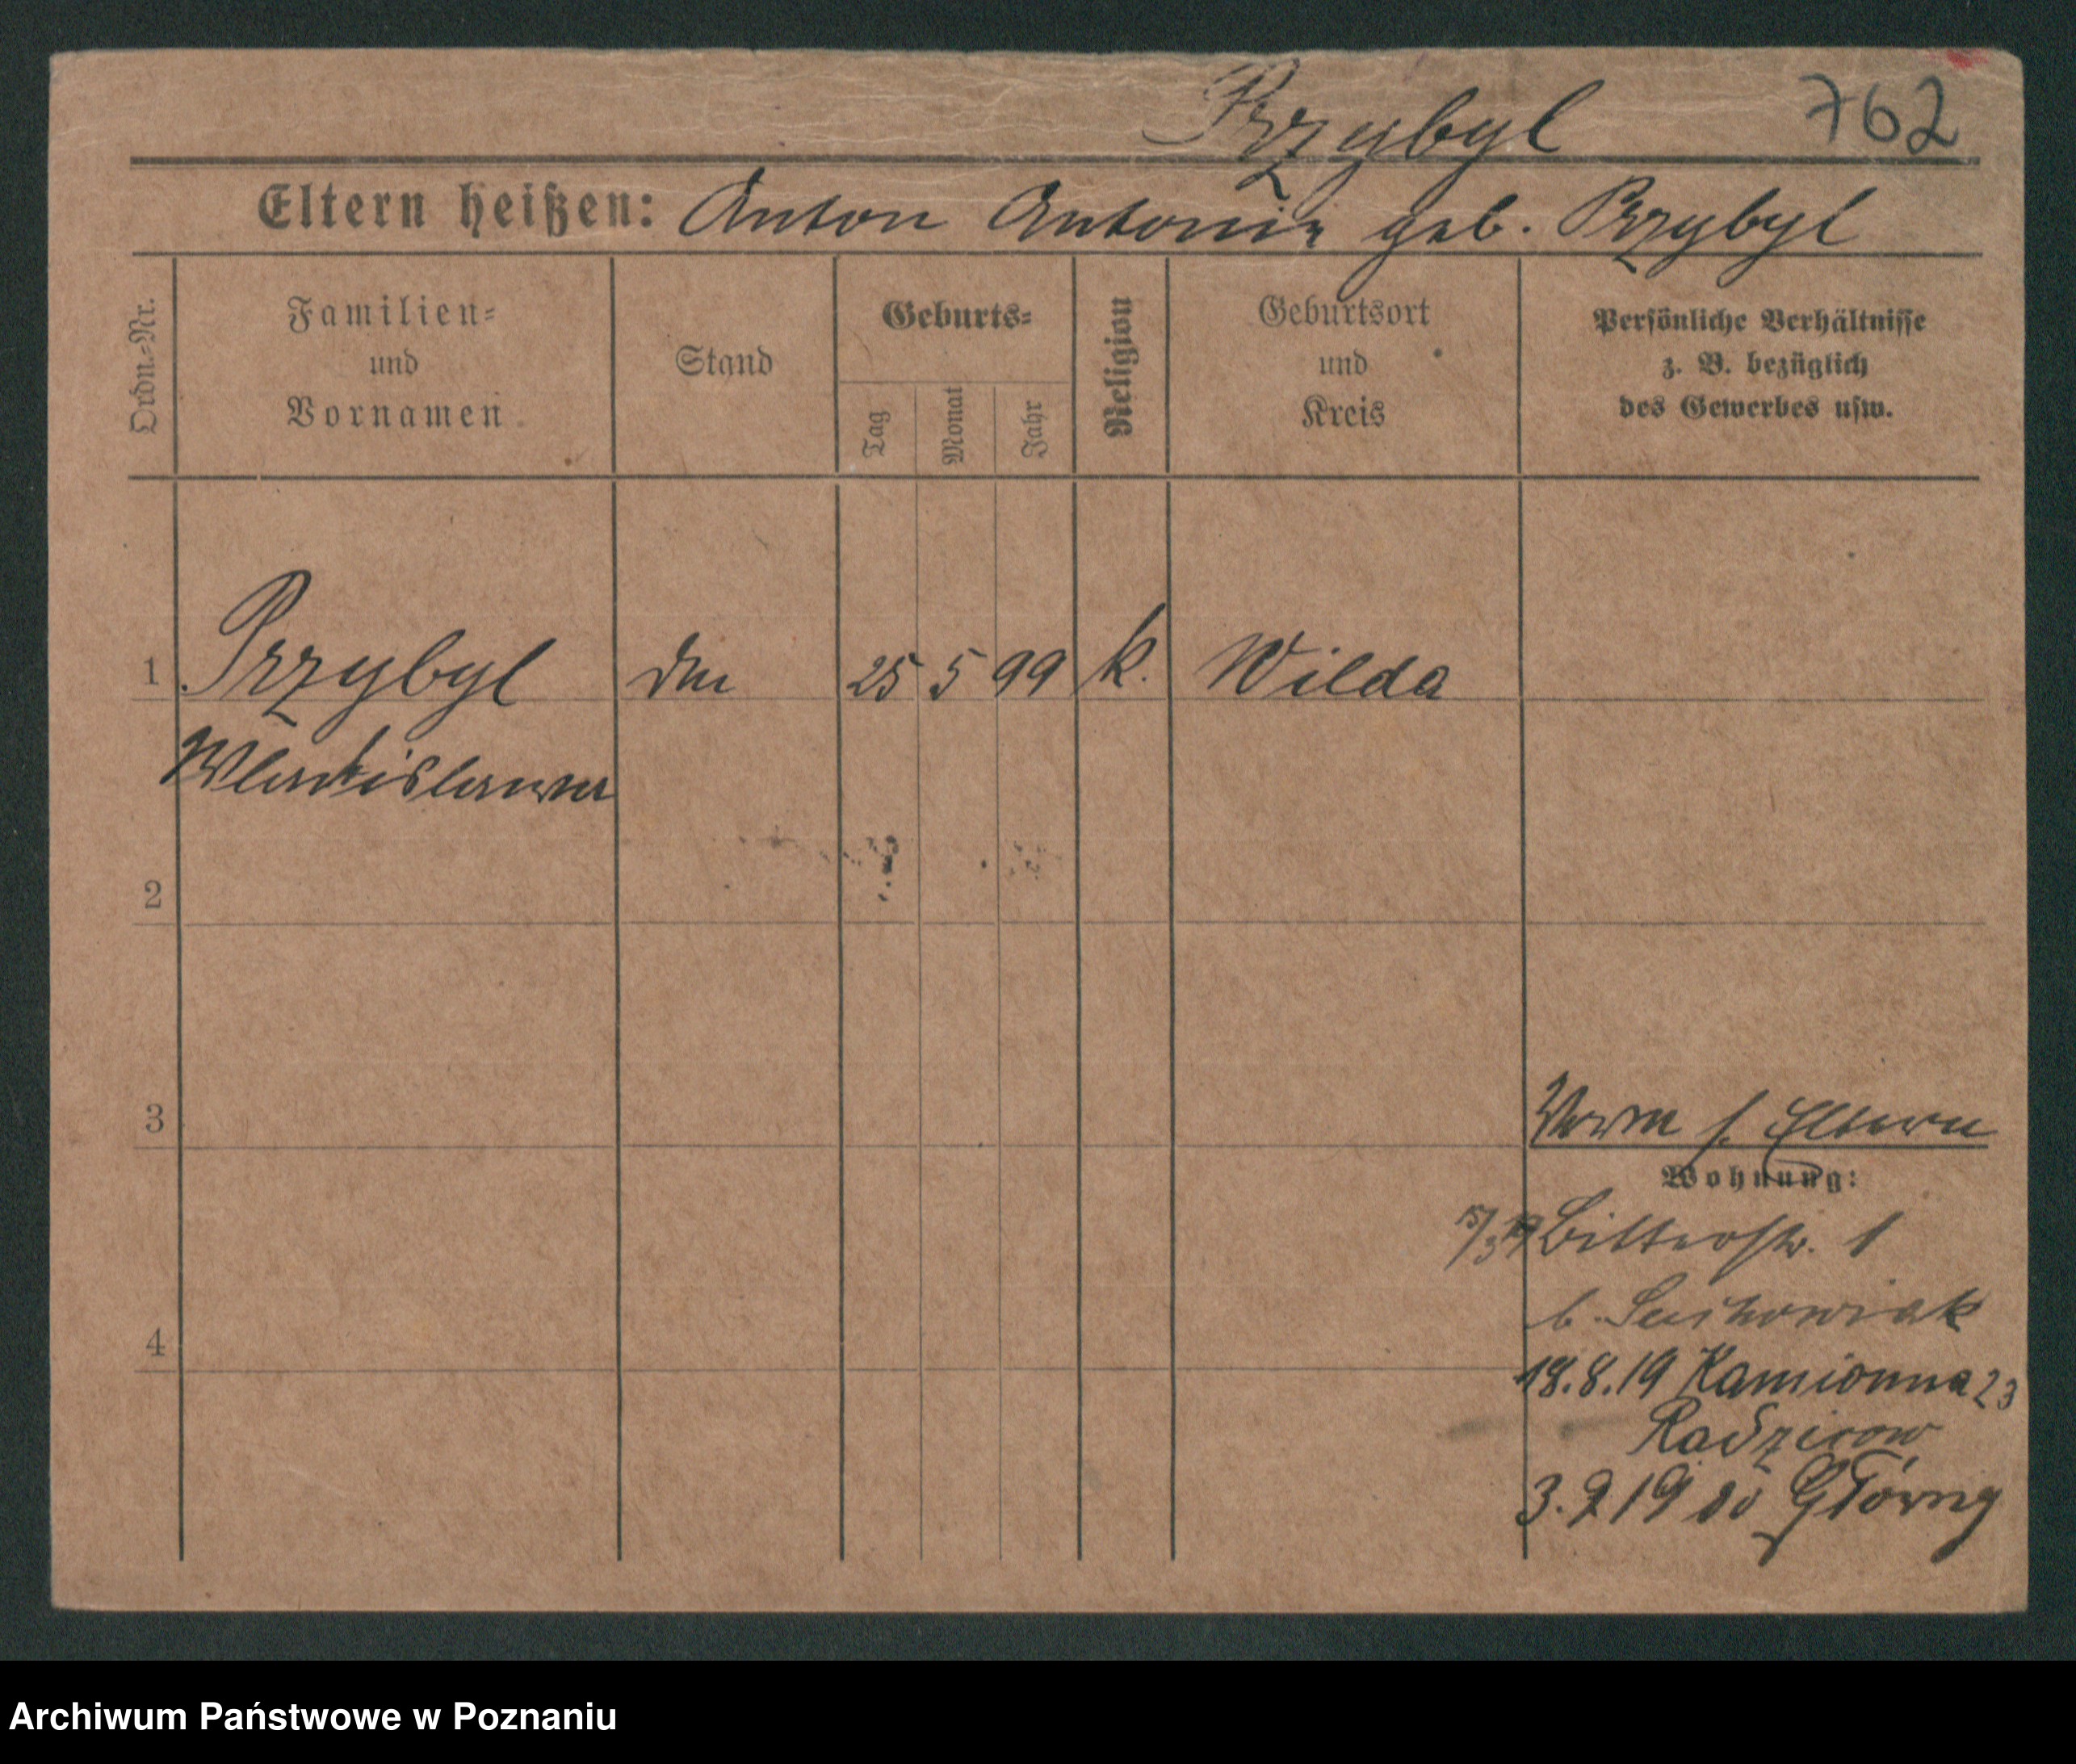 Przybyl 762
Eltern heißen: Anton Antonie geb. Przybyl
Ordn.-Nr.
Familien-
und
Vornamen
Stand
Geburts-
Tag
Monat
Jahr
Religion
Geburtsort
und
Kreis
Persönliche Verhältnisse
z. B. bezüglich
des Gewerbes usw.
1 Przybyl 25 5 99 k. Wilda
Wladislawa
2
3
s. Eltern
Wohnung:
1
b.
4
18.8.19 Kamionna 23
3.9 19 do Główny
Archiwum Państwowe w Poznaniu